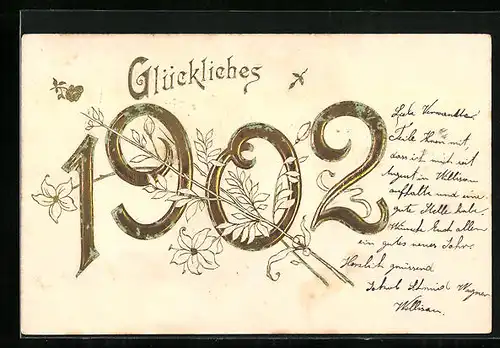 Glückliches
1902
Liebe Verwandte!
Teile Ihnen mit,
dass ich mich seit
August in Willisau
aufhalte und eine
gute Stelle habe.
Wünsch Euch allen
ein gutes neues Jahr.
Herzlich grüssend
Jakob Schmid Wagner
Willisau.